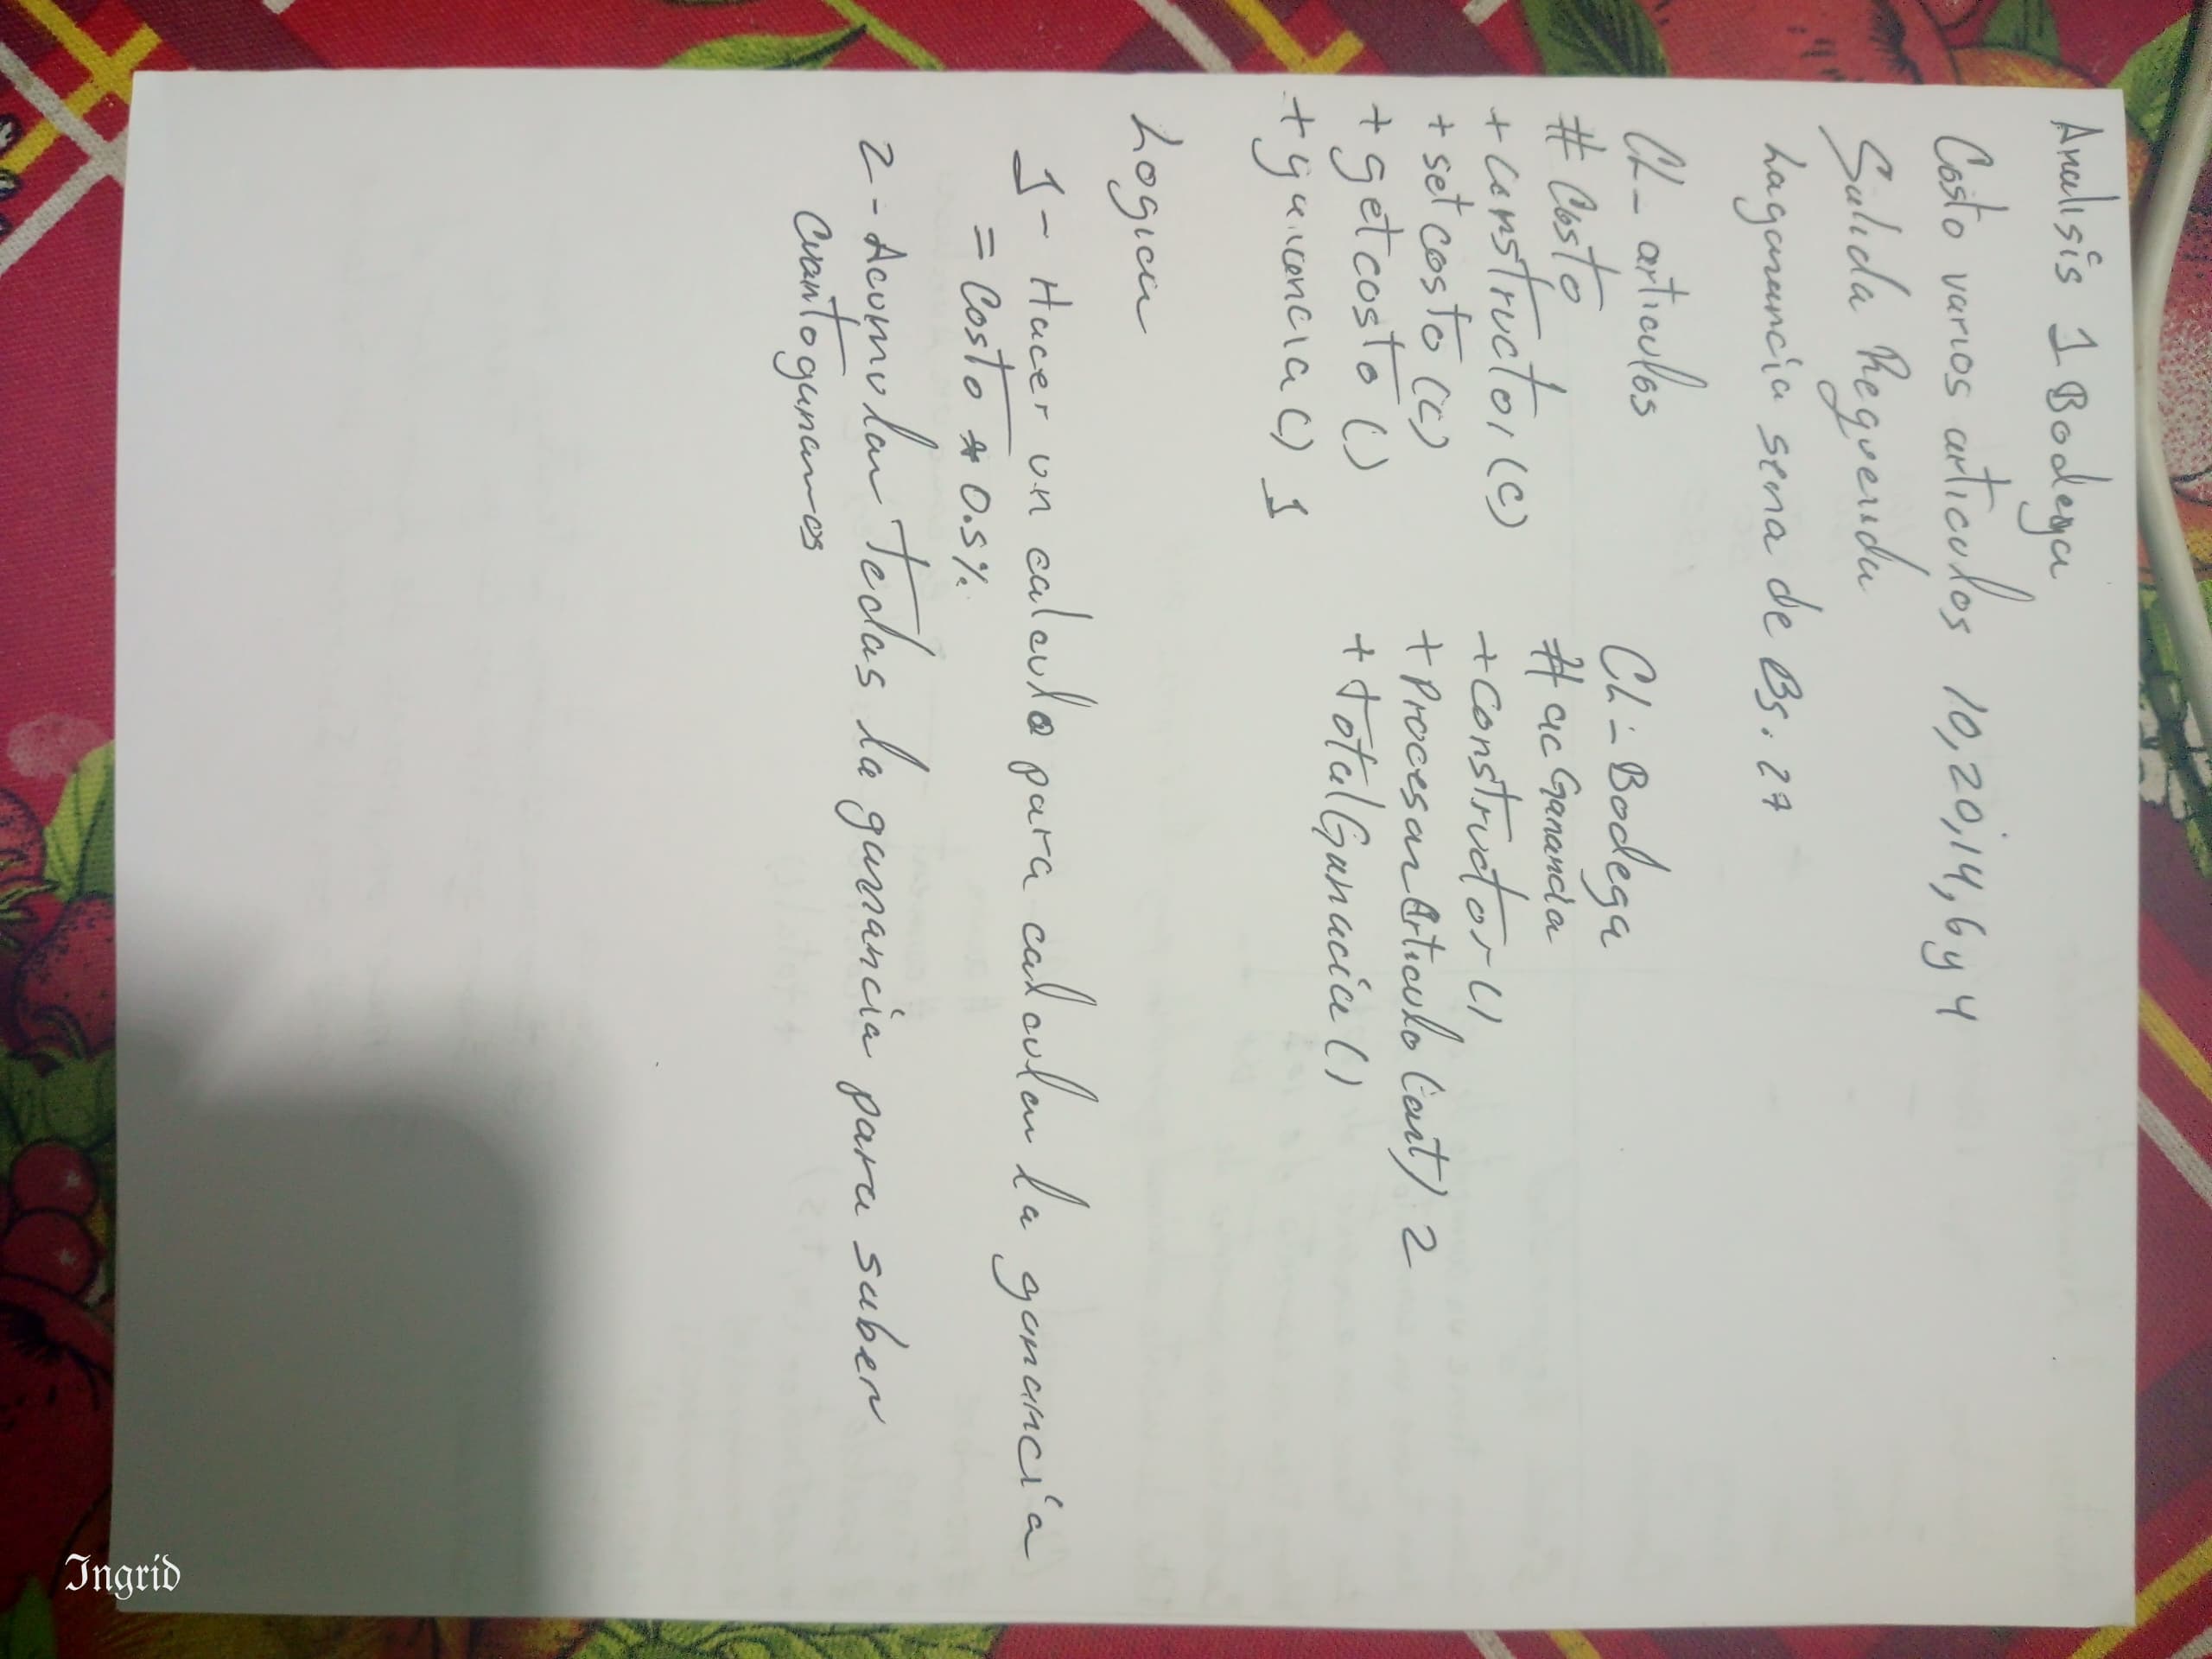 Analisis 1 Bodega
Costo varios articulos 10, 20, 14, 6 y 4
Salida Requerida
La ganancia sera de Bs. 27
Cl_articulos
# Costo
+ Constructor (c)
+ set costo (c)
+ get costo ()
+ ganancia () 1
Cl_Bodega
# ac Ganancia
+ Constructor ()
+ Procesar Articulo (art) 2
+ total Ganacia ()
Logica
1- Hacer un calculo para calcular la ganancia
= Costo * 0.5%
2- Acomular Todas la ganancia para saber
cuanto ganamos
Ingrid